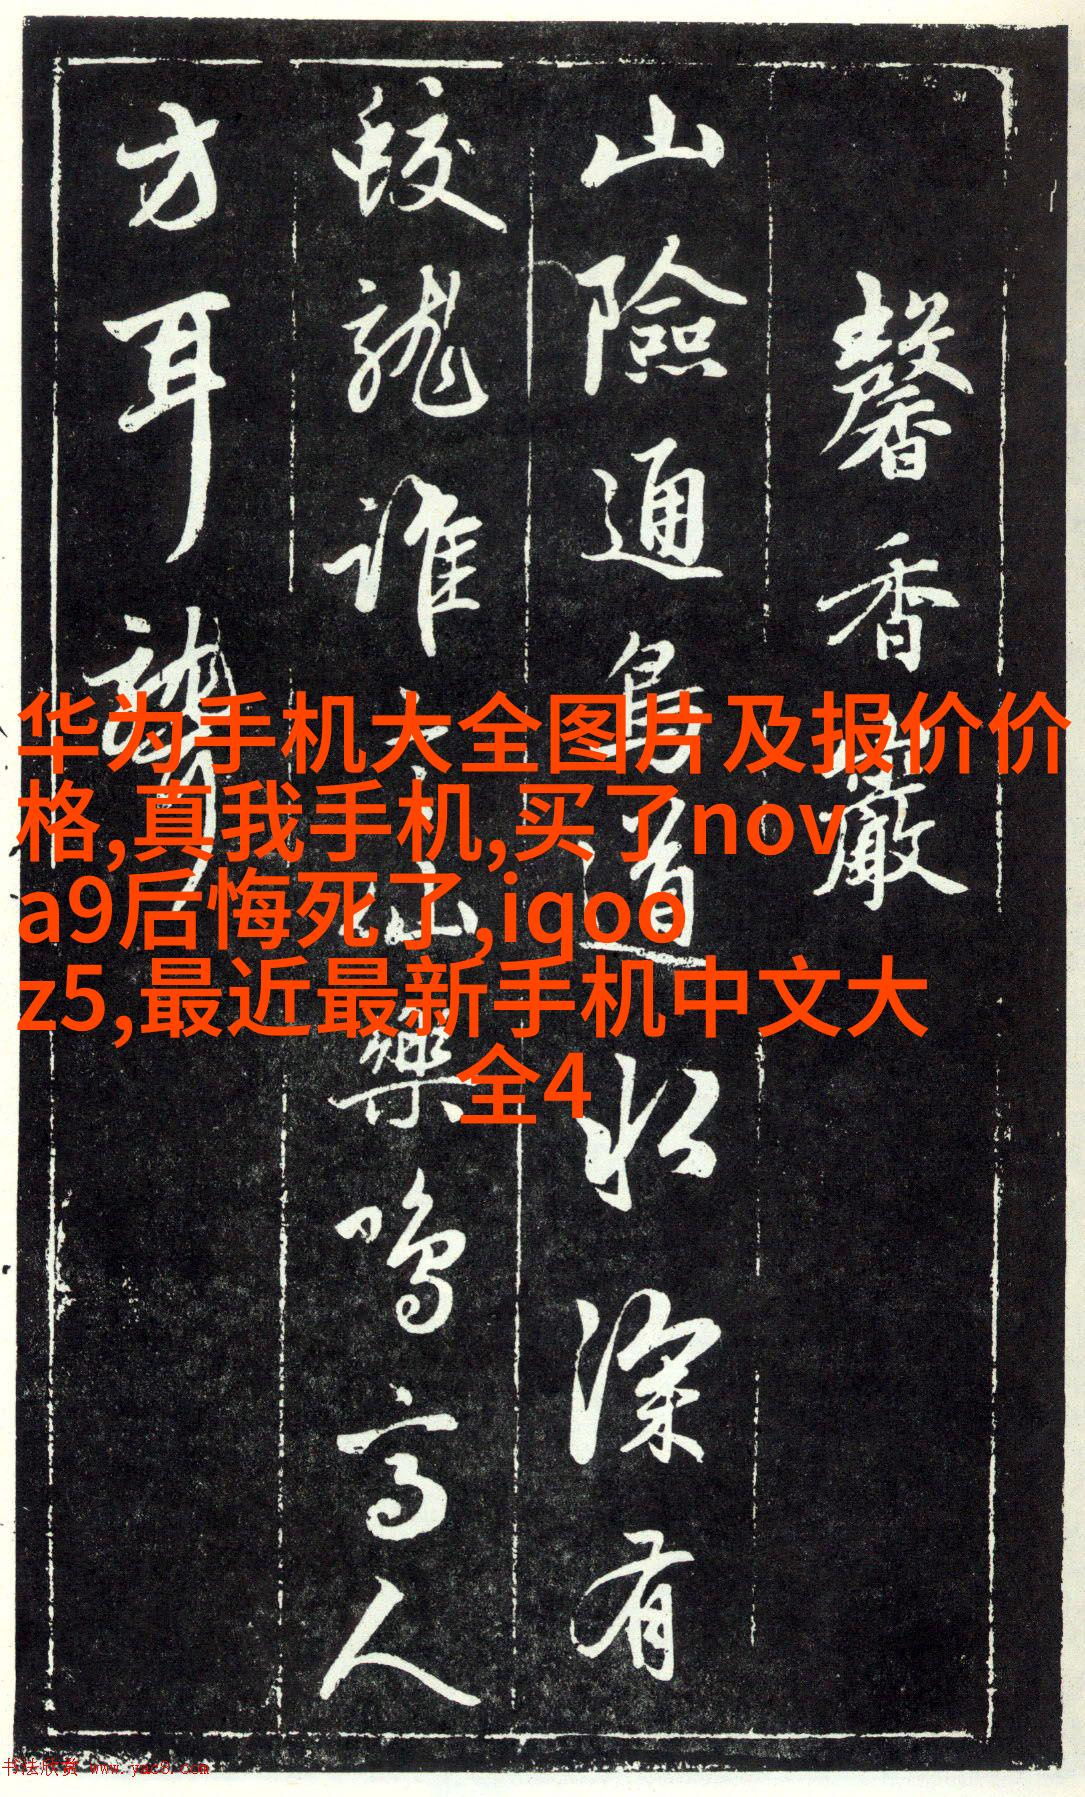 馨香
山險通鳥道水深有
蛟龍谁山樂鳴高人
方耳聾
华为手机大全图片及报价价
格,真我手机,买了nov
a9后悔死了,iqoo
z5,最近最新手机中文大
全4
书法欣赏 www.yac8.com